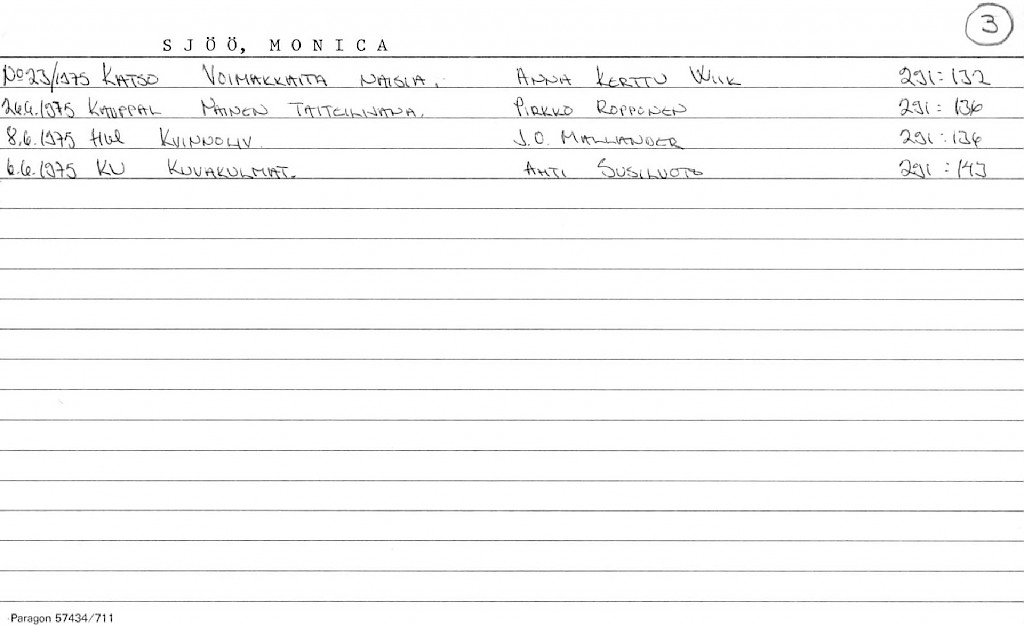 3
SJÖÖ, MONICA
No 23/1975 KATSO VOIMAKKAITA NAISIA. ANNA KERTTU WIIK 291:132
1975 KAUPPAL NAINEN TAITEILIJANA. PIRKKO ROPPONEN 291:136
8.6.1975 Hbl KVINNOLIV. J.O. MALLANDER 291:136
6.6.1975 KU KUVAKULMAT. AHTI SUSILUOTO 291:143
Paragon 57434/711